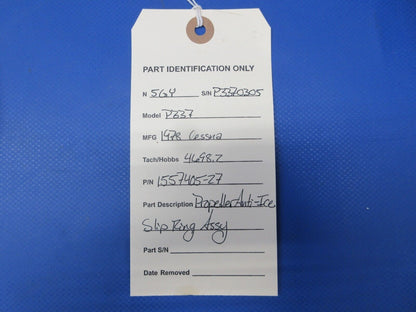 PART IDENTIFICATION ONLY
N 5GY S/N P3370305
Model P337
MFG 1978 Cessna
Tach/Hobbs 4698.2
P/N 1557405-27
Part Description Propeller Anti-Ice
Slip Ring Assy
Part S/N
Date Removed